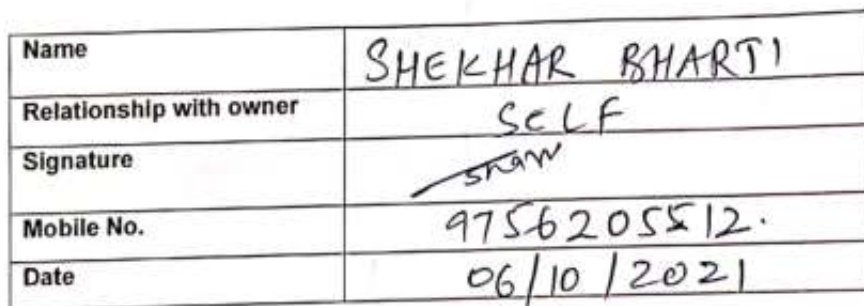 Name SHEKHAR BHARTI
Relationship with owner SELF
Signature
Mobile No. 9756205512.
Date 06/10/2021